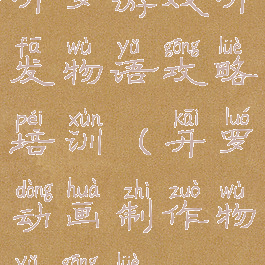 fā wù yǔ gōng lüè
发物语攻略
péi xùn kāi luó
培训（开罗
dòng huà zhì zuò wù
动画制作物
yǔ gōng lüè